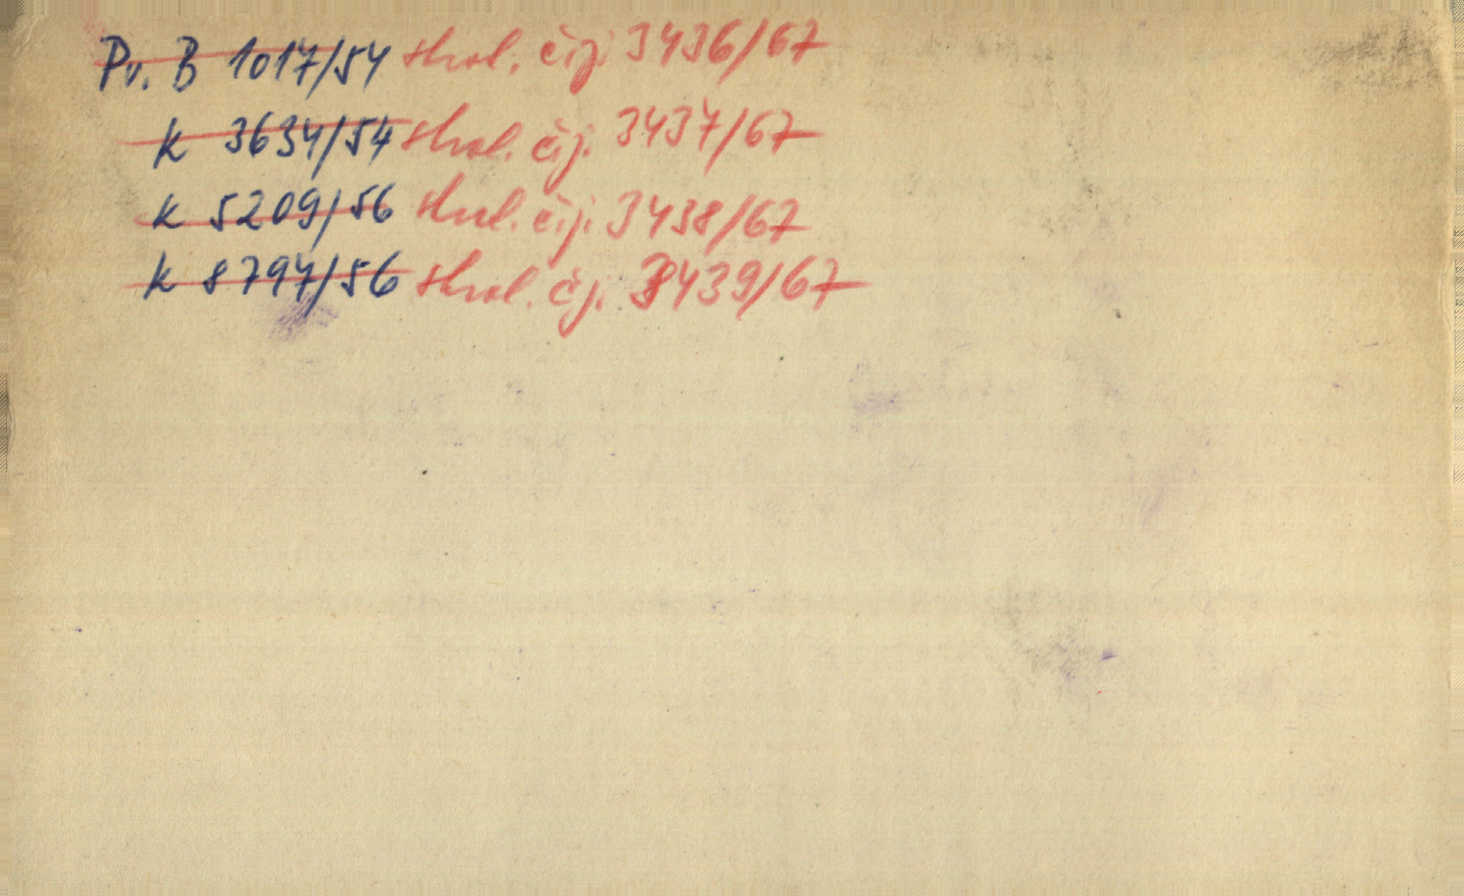 Pv. B 1017/54 skal. čj. 3436/67
k 3634/54 skal. čj. 3437/67
k 5209/56 skal. čj. 3438/67
k 8797/56 skal. čj. 3439/67